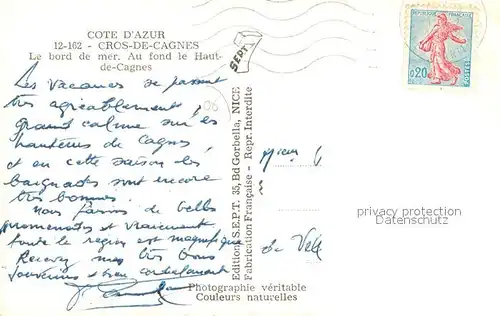 COTE D'AZUR
12-162 - CROS-DE-CAGNES
Le bord de mer. Au fond le Haut-
de-Cagnes
Les vacances se passent
très agréablement,
grand calme sur les
hauteurs de Cagnes
et en cette saison les
baignades sont encore
très bonnes.
Nous faisons de belles
promenades et vraiment
toute la région est magnifique
Recevez mes très bons
souvenirs et bien cordialement
SEPT
Editions S.E.P.T. 35, Bd Gorbella, NICE
Fabrication Française - Repr. Interdite
Photographie véritable
Couleurs naturelles
REPUBLIQUE FRANÇAISE
0,20
POSTES
06
de
privacy protection
Datenschutz